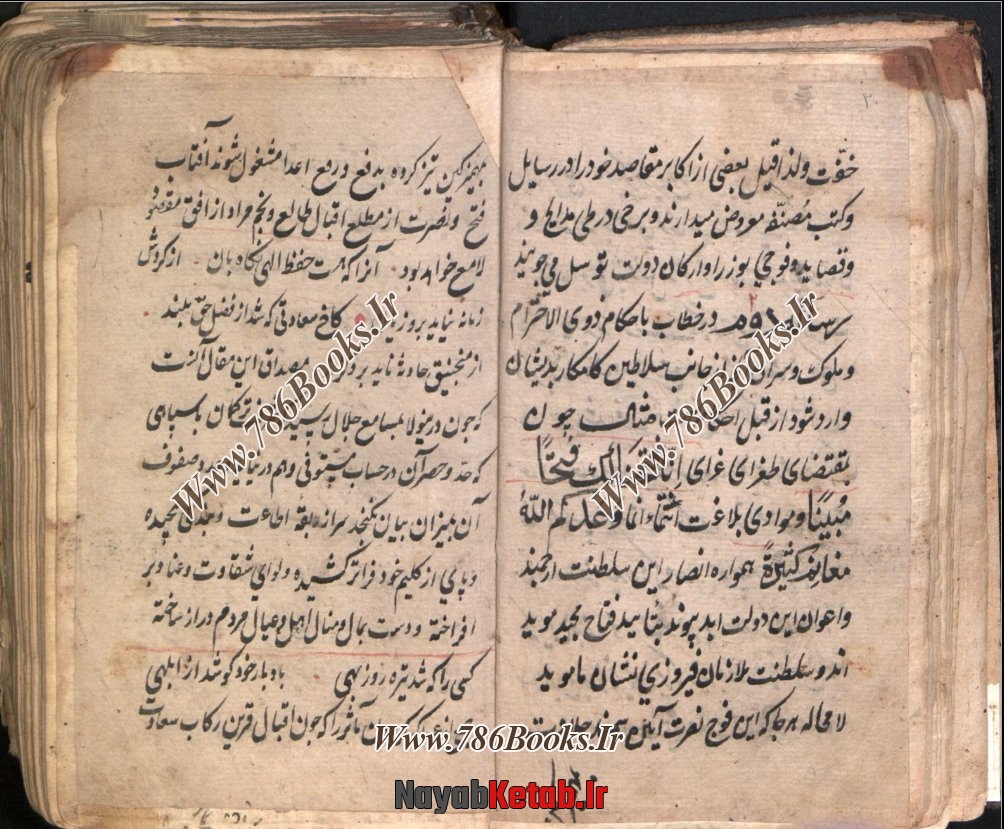 خفّت ولذا قیل بعضی از اکابر مقاصد خود را در رسایل
و کتب مصنّفه معروض میدارند و برخی در طی مدایح و
و قصاید و فوجی بوزرا و ارکان دولت توسل می جویند
در خطاب با حکام ذوی الاحترام
و ملوک و سران از جانب سلاطین کامکار بدیشان
وارد شود از قبل مثال چون
بمقتضای طغرای غرای إنا فتحنا لک فتحًا
مُبینًا و بوادی بلاغت وعدکم الله
مغانم کثیرةً همواره انصار این سلطنت ارجمند
و اعوان این دولت ابد پیوند بتایید فتاح مجید موید
اند و سلطنت ملازمان فیروزی نشان مابوید
لا محاله هر جا که این فوج نصرت آیین
بمهمیز کین تیز کرده بدفع و رفع اعدا مشغول شوند آفتاب
فتح و نصرت از مطلع اقبال طالع و نجم مراد از افق مقصود
لامع خواهد بود آنرا که هست حفظ الهی نگاه بان از گردش
زمانه نیاید بروز کاخ سعادتی که شد از فضل حق بلند
از منجنیق حادثه ناید برو مصداق این مقال آنست
که چون درینولا بمسامع جلال رسید ترکمان با سپاهی
که حدّ و حصر آن در حساب مستوفی وهم در نیاید و صفوف
آن بمیزان بیان نگنجد سر از ربقهٔ اطاعت و پیچیده
و پای از گلیم خود فراتر کشیده و لوای شقاوت و عناد بر
افراخته و دست بمال و منال اهل و عیال مردم دراز ساخته
کسی را که شد تیره روز بهی با دبار خود کوشد از ابلهی
از مآثر را که چون اقبال قرین رکاب سعادت
Www.786Books.Ir
Www.786Books.Ir
Www.786Books.Ir
NayabKetab.Ir